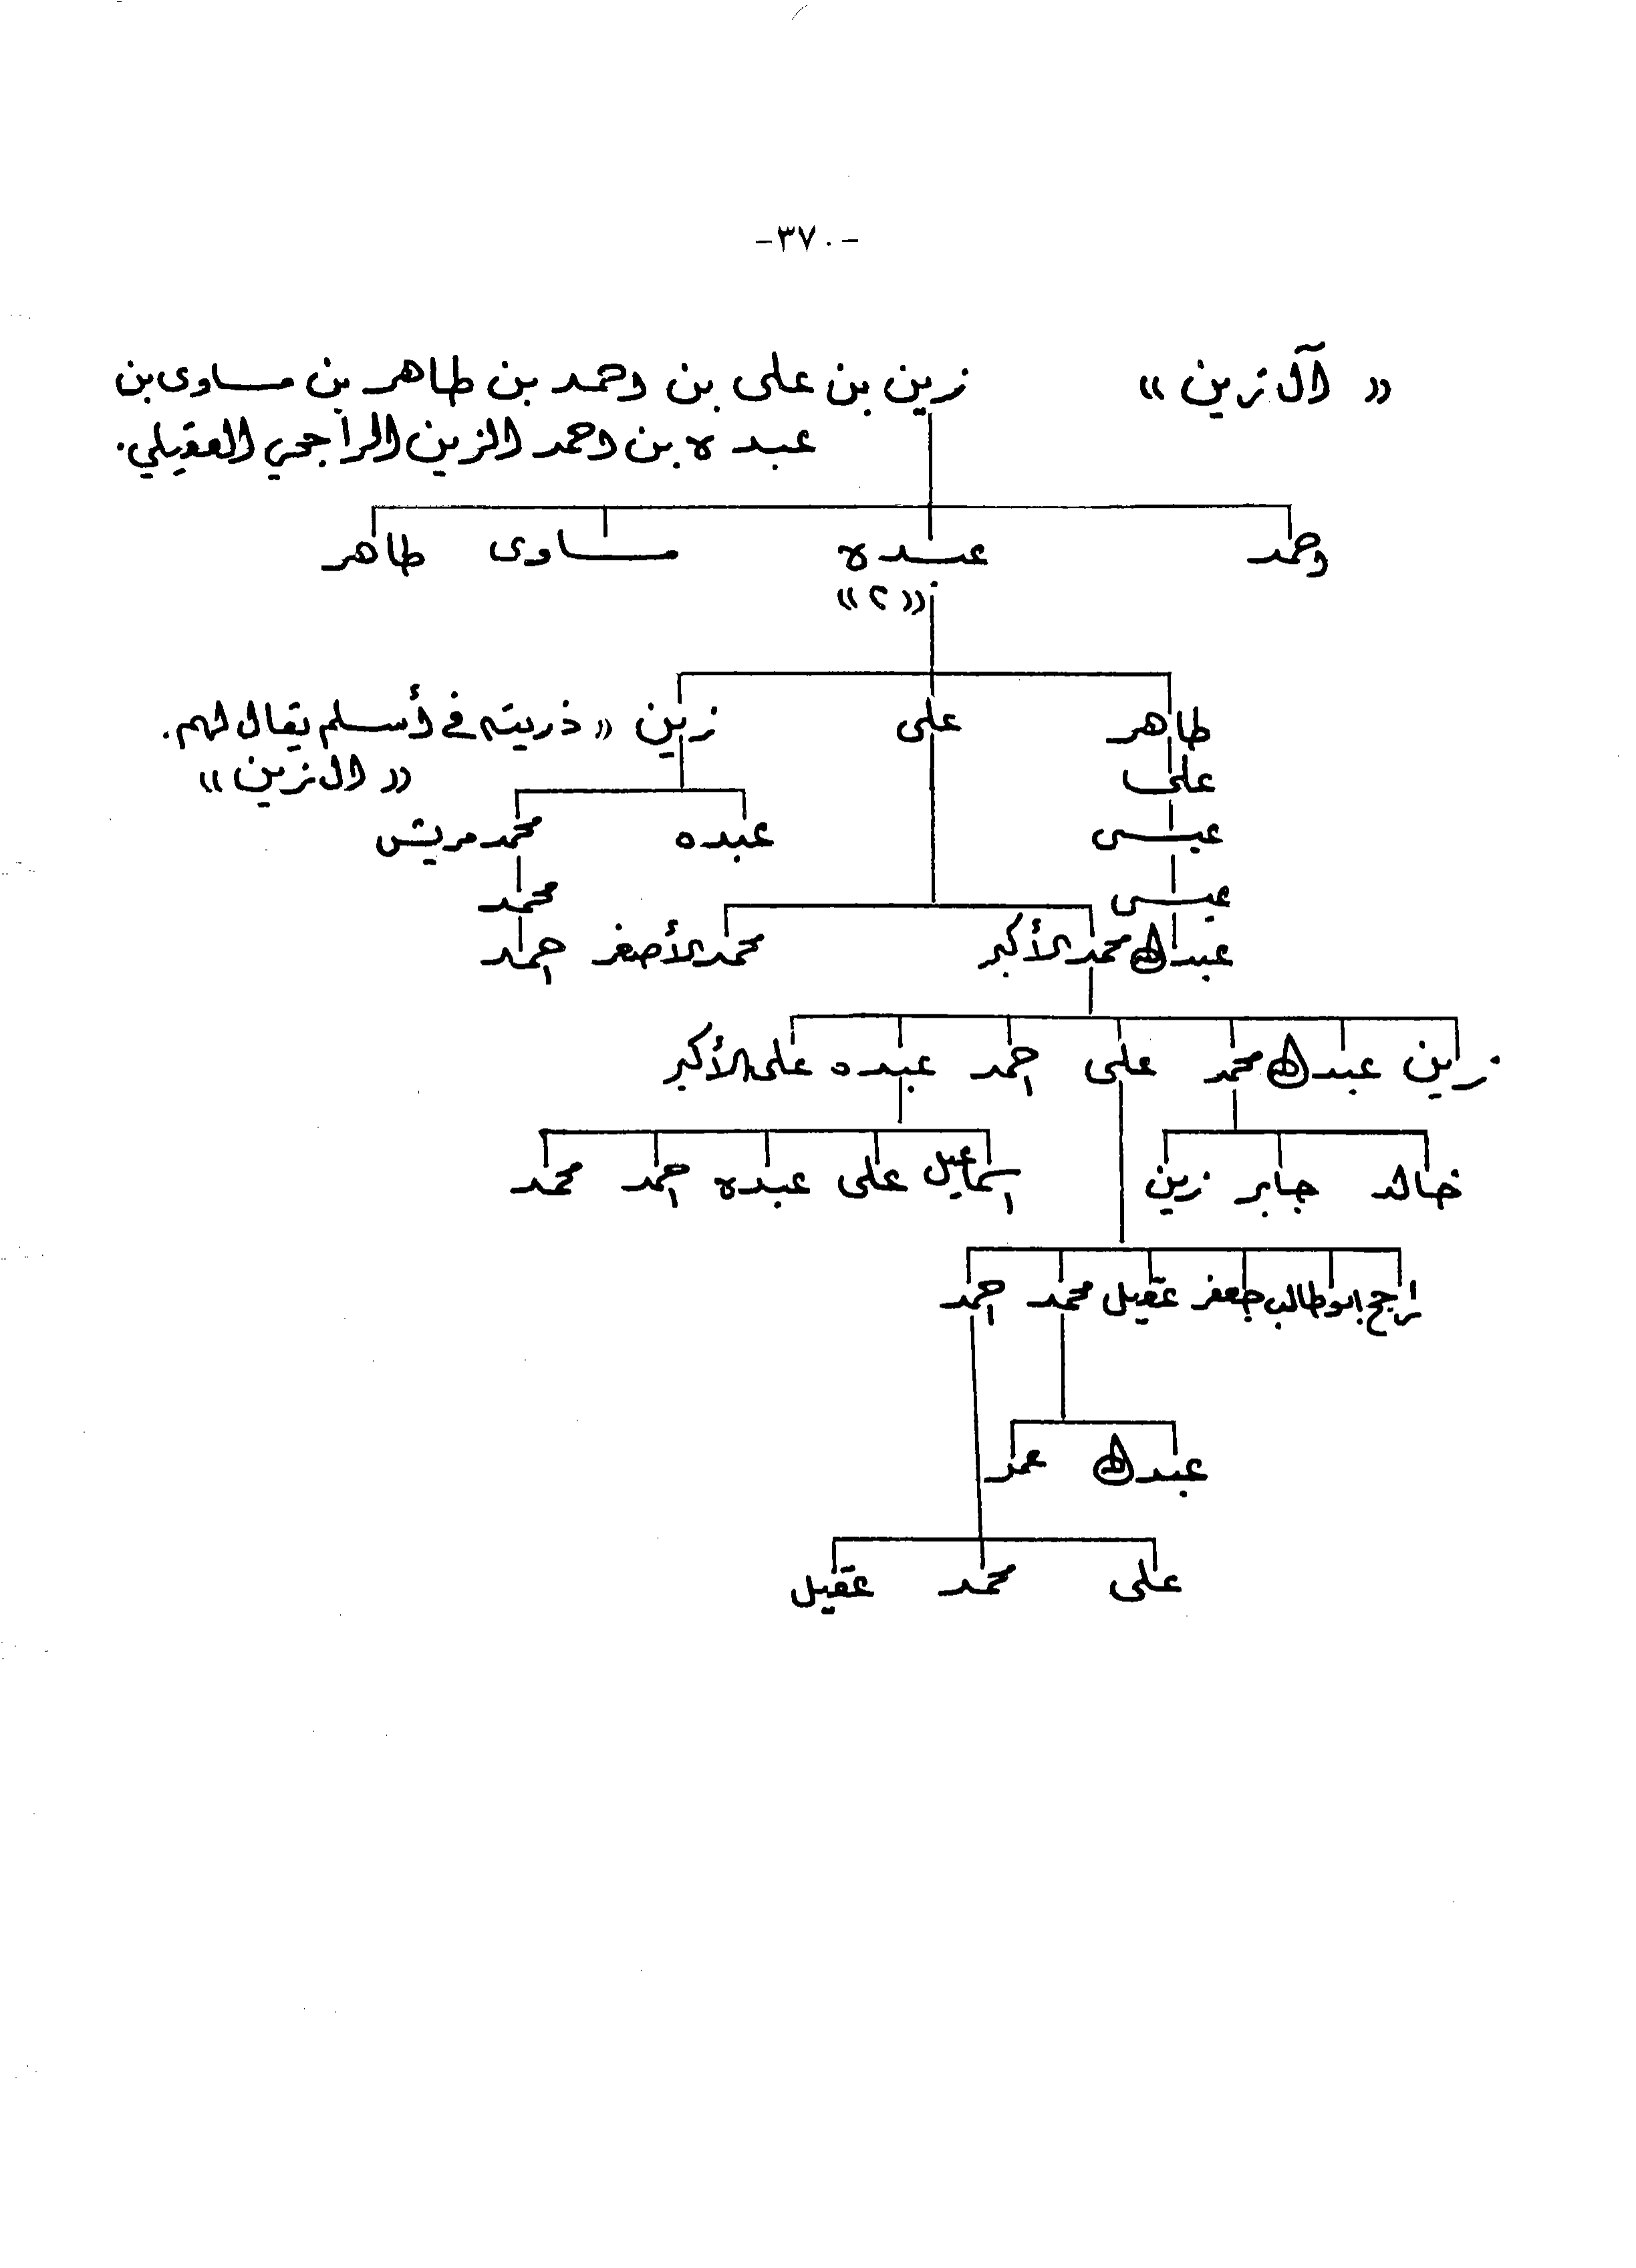 -٣٧٠-
« آل زين » زين بن على بن احمد بن طاهر بن مساوى بن
عبده بن احمد الزين الراجحي العقيلي.
احمد عبده مساوى طاهر
«٢»
طاهر على زين « ذريته في أسلم يقال لهم.
على « ال زين »
عيسى عبده محمد مريش
عيسى محمد
عبدالله محمد الأكبر محمد الأصغر احمد
زين عبدالله محمد على احمد عبده على الأكبر
خالد جابر زين اسماعيل على عبده احمد محمد
راجح ابوطالب جعفر عقيل محمد احمد
عبدالله عمر
على محمد عقيل